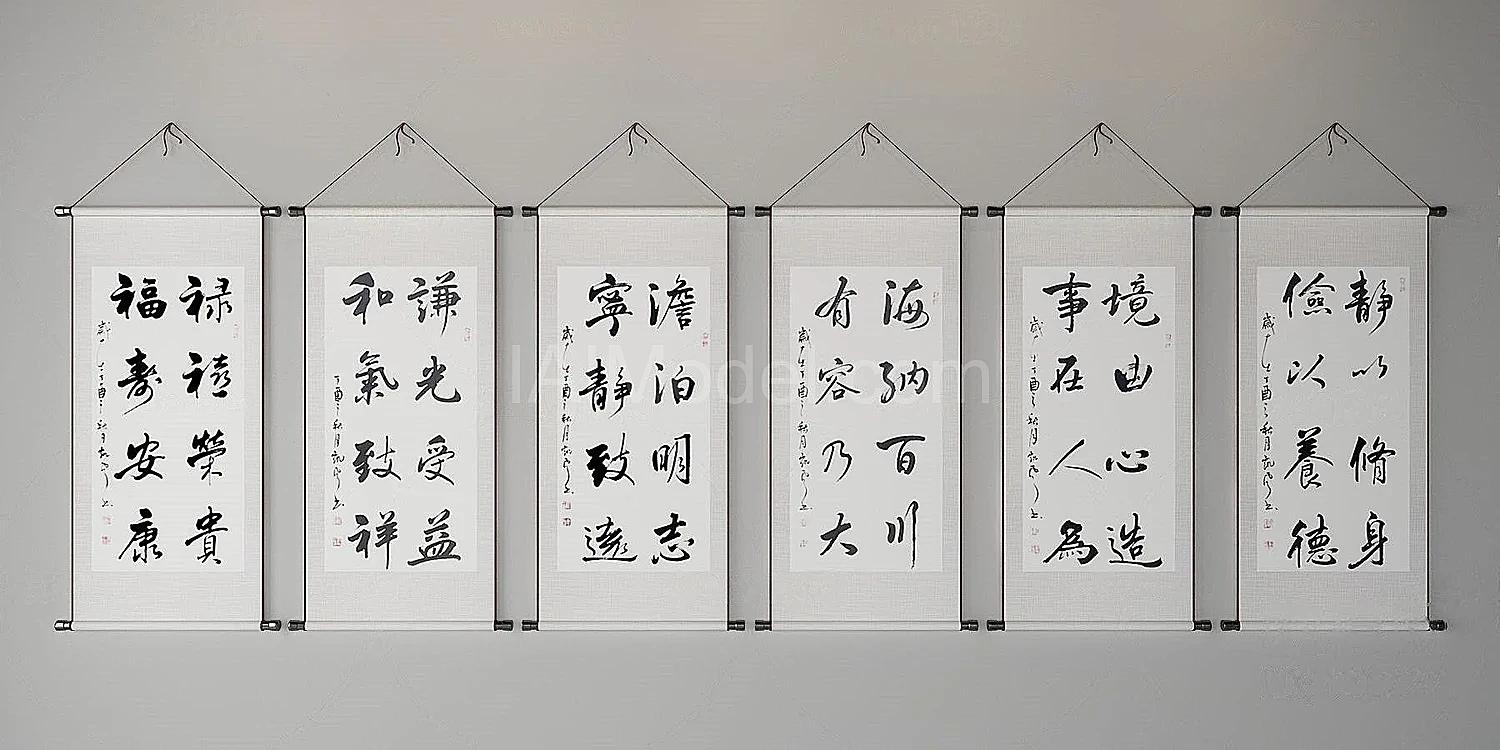 靜以脩身
儉以養德
歲 丁酉之秋月
境由心造
事在人為
歲 丁酉之秋月
海納百川
有容乃大
歲 丁酉之秋月
澹泊明志
寧靜致遠
歲 丁酉之秋月
謙光受益
和氣致祥
丁酉之秋月
禄禧榮貴
福壽安康
歲 丁酉之秋月
IAIModel.com